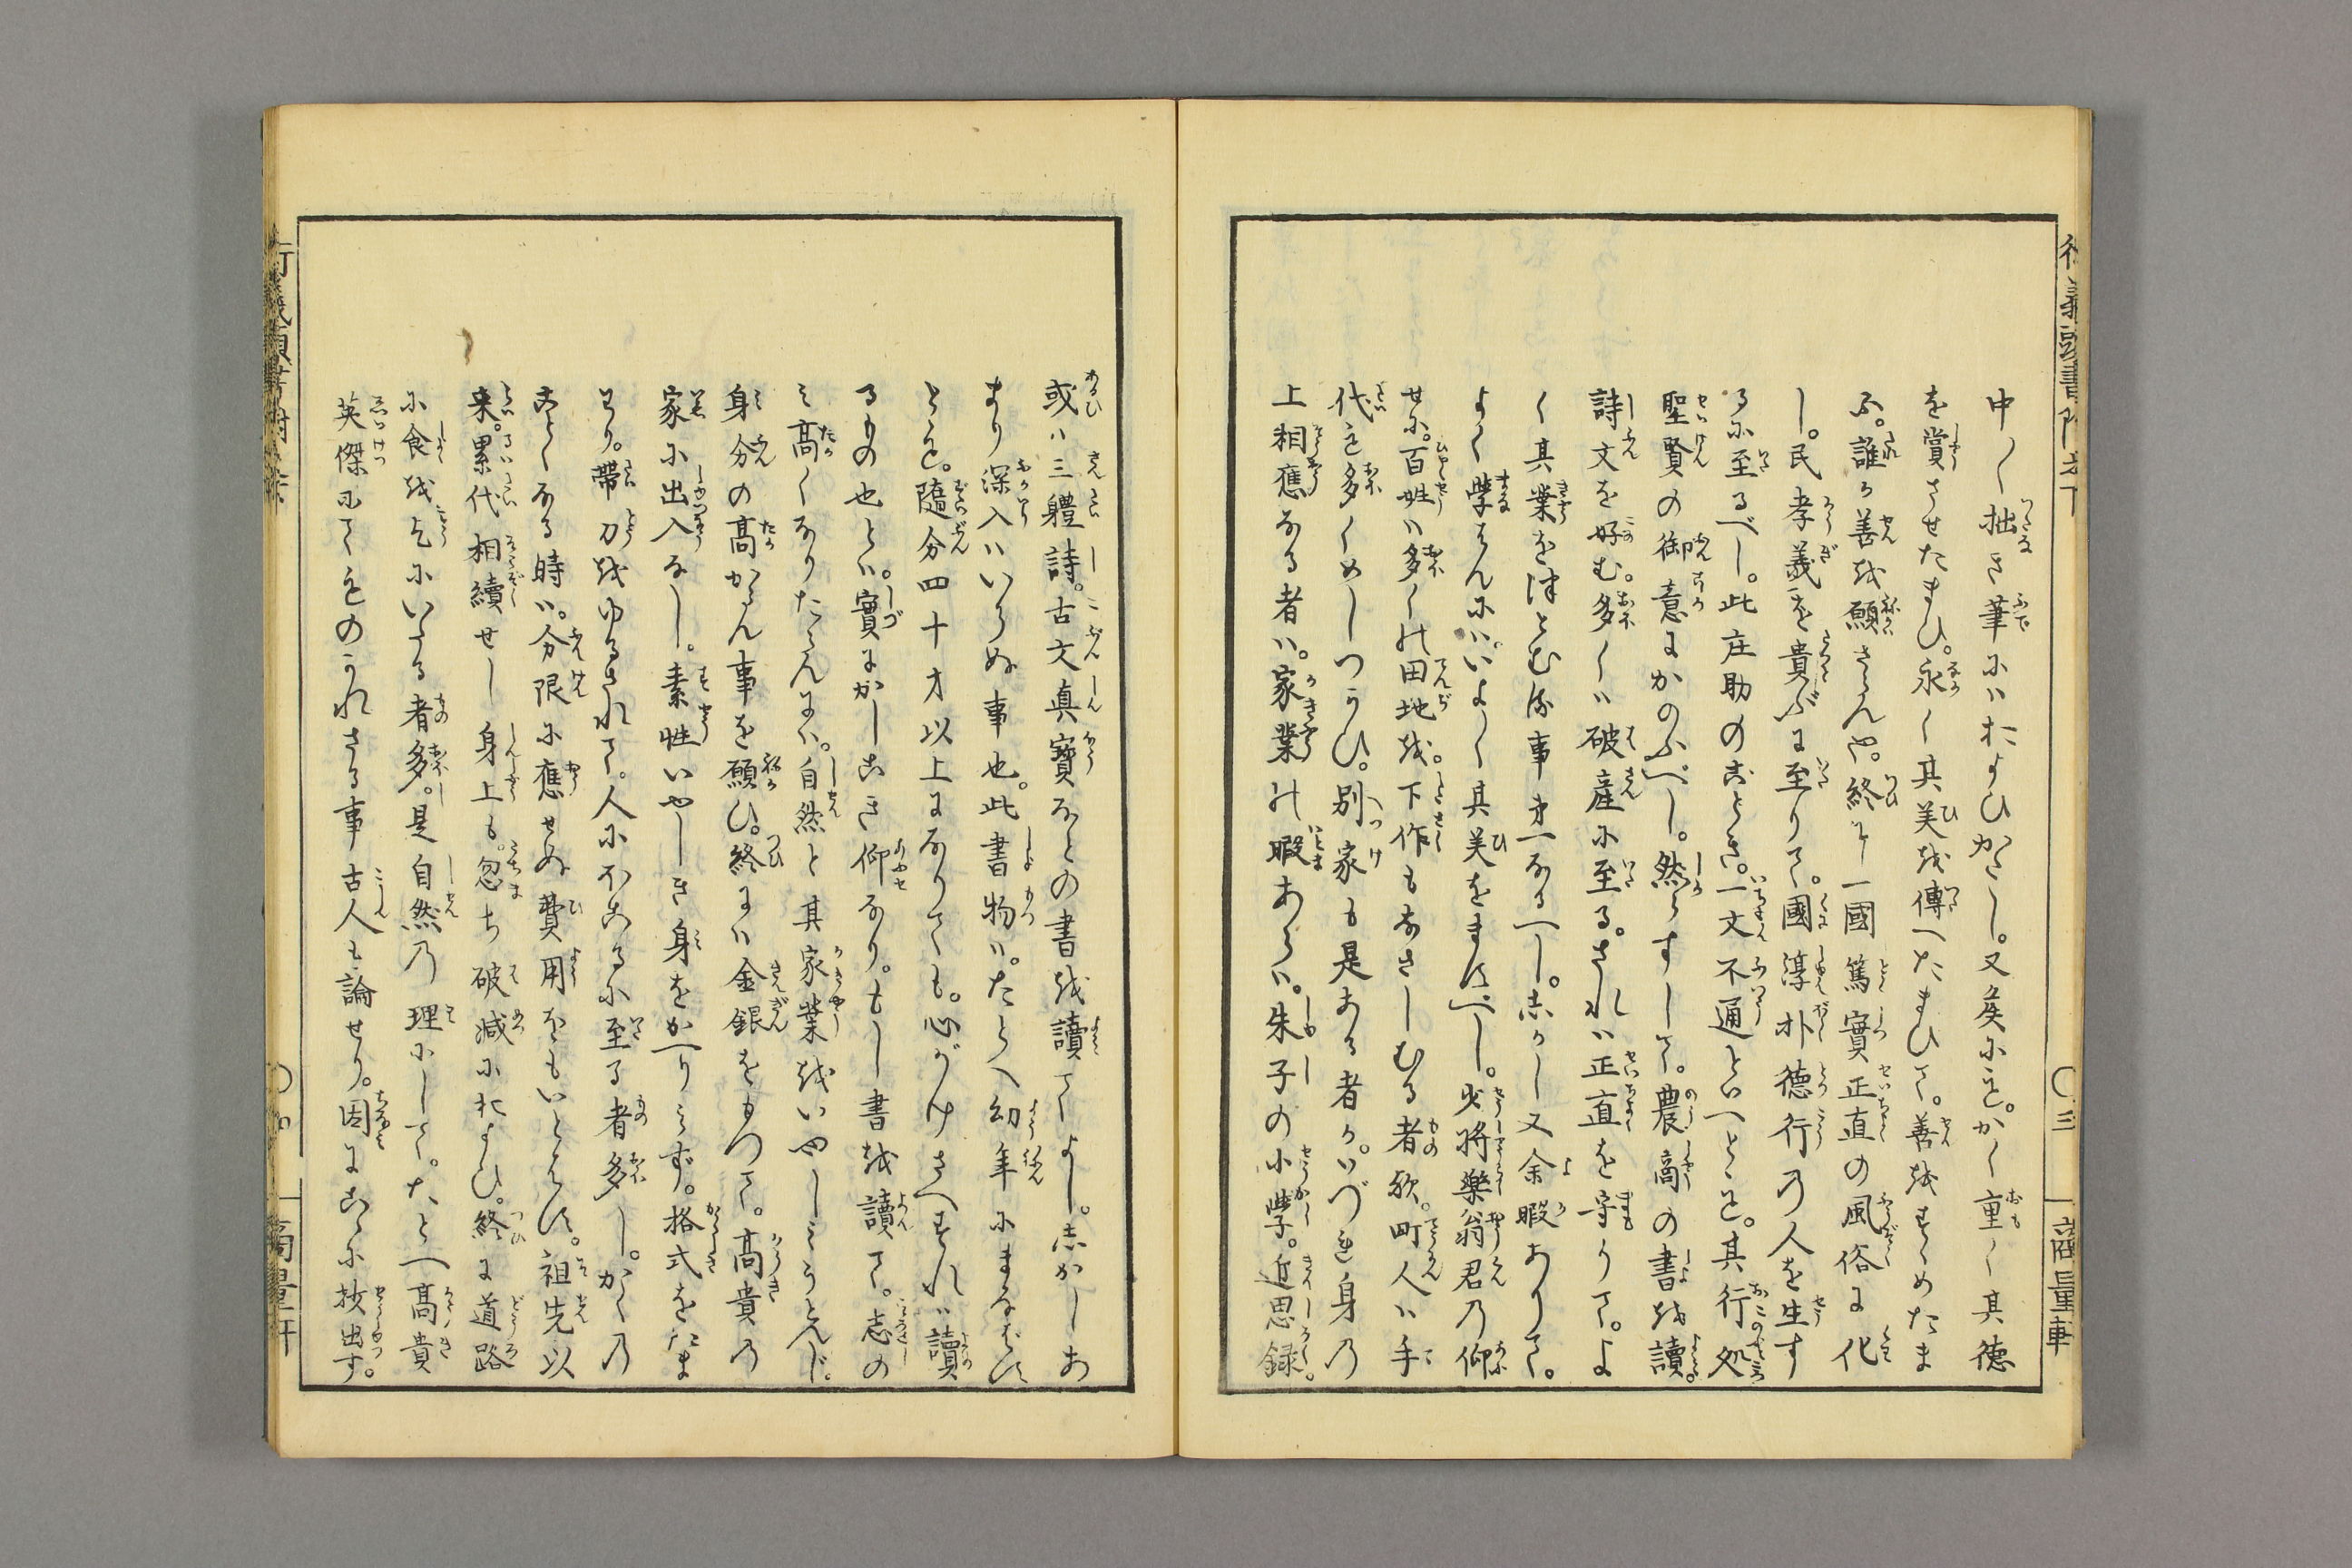 中〱拙き筆にはおよひがたし。又矦にも。かく重く其徳
を賞させたまひ。永く其美を傳へたまひて。善をすゝめたま
ふ。誰か善を願さらんや。終に一國篤實正直の風俗に化
し。民孝義を貴ぶに至りて。國淳朴徳行の人を生す
るに至るべし。此庄助のことき。一文不通といへとも。其行処
聖賢の御意にかのふべし。然らすして。農商の書を讀。
詩文を好む。多くは破産に至る。されは正直を守りて。よ
く其業をつとむる事才一なるへし。しかし又余暇ありて。
よく學はんには。いよ〱其美をますべし。少将樂翁君の仰
せに。百姓は多くの田地を。下作もなさしむる者歟。町人は手
代も多くめしつかひ。別家も是ある者か。いづれ身の
上相應なる者は。家業の暇あらは。朱子の小學。近思録。
或は三體詩。古文真寳なとの書を讀てよし。しかしあ
まり深入はいらぬ事也。此書物は。たとへ幼年にまなばす
とも。随分四十才以上になりても。心がけさへすれは讀
るもの也とは。實にかしこき仰なり。もし書を讀て。志の
み高くなりたらんには。自然と其家業をいやしみうとんじ。
身分の高からん事を願ひ。終には金銀をもつて。高貴の
家に出入なし。素性いやしき身をかへりみず。格式をたま
はり。帯刀をゆるされて。人にほこるに至る者多し。かくの
ことくなる時は。分限に應せぬ費用をもいとはす。祖先以
来。累代相續せし身上も。忽ち破滅におよひ。終に道路
に食を乞にいたる者多し。是自然の理にして。たとへ高貴
英傑にてものかれさる事古人も論せり。因にこゝに抜出す。
行義頭書附志下
〇三
商量軒